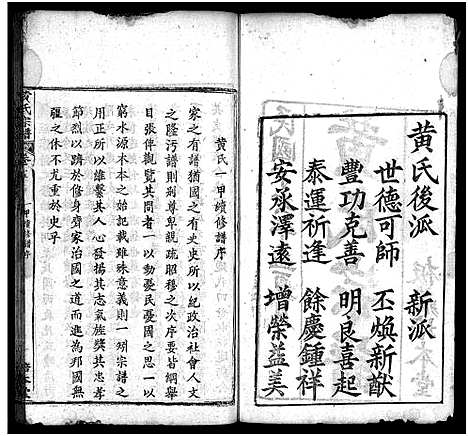 黃氏後派 新派
世德可師 丕煥新猷
豐功克善 明良喜起
泰運祈逢 餘慶鍾祥
安承澤遠 增榮益美
黃氏一甲續修譜序
家之有譜猶國之有史史所以紀政治社會人文
之隆污譜則別尊卑親疏昭穆之次序要皆綱舉
目張俾觀覽其間者一以動憂民憂國之思一以
窮水源木本之想記載雖殊意義則一矧宗譜之
用正所以維繫其人心發揚其志氣族奬其忠孝
節烈以及於修身齊家治國之道其為邦國無
疆之休不尤重於史乎